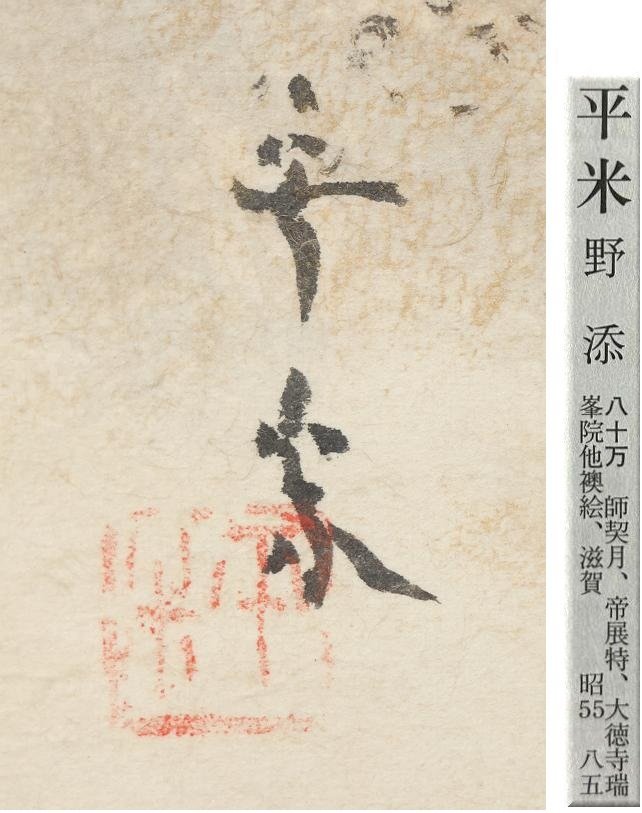 平米
平米 野添
八十万 師契月、帝展特、大徳寺瑞
峯院他襖絵、滋賀 昭55 八五